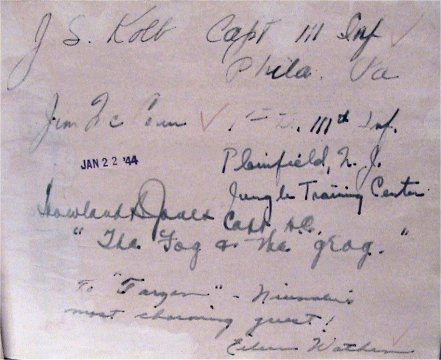 J S. Kolb Capt 111 Inf
Phila. Pa
Jim 1st Lt. 111th Inf.
JAN 22 '44 Plainfield, N. J.
Jungle Training Center
Howland Capt. A.C.
"The Fog & the grog."
To "Tarzan" -
most charming guest!
Eileen